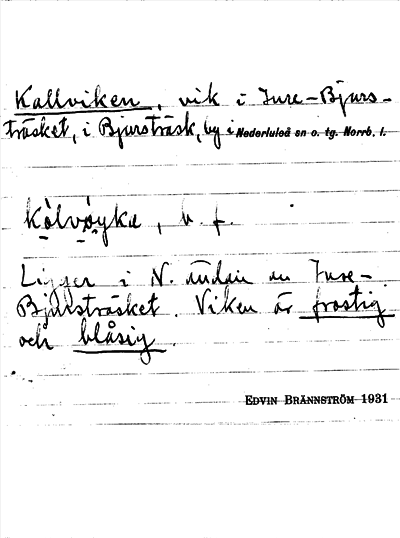 Kallviken, vik i Inre-Bjurs-
träsket, i Bjursträsk, by i Nederluleå sn o. tg. Norrb. l.
kålvøyka, b. f.
Ligger i N. ändan av Inre-
Bjursträsket. Viken är frostig
och blåsig.
EDVIN BRÄNNSTRÖM 1931